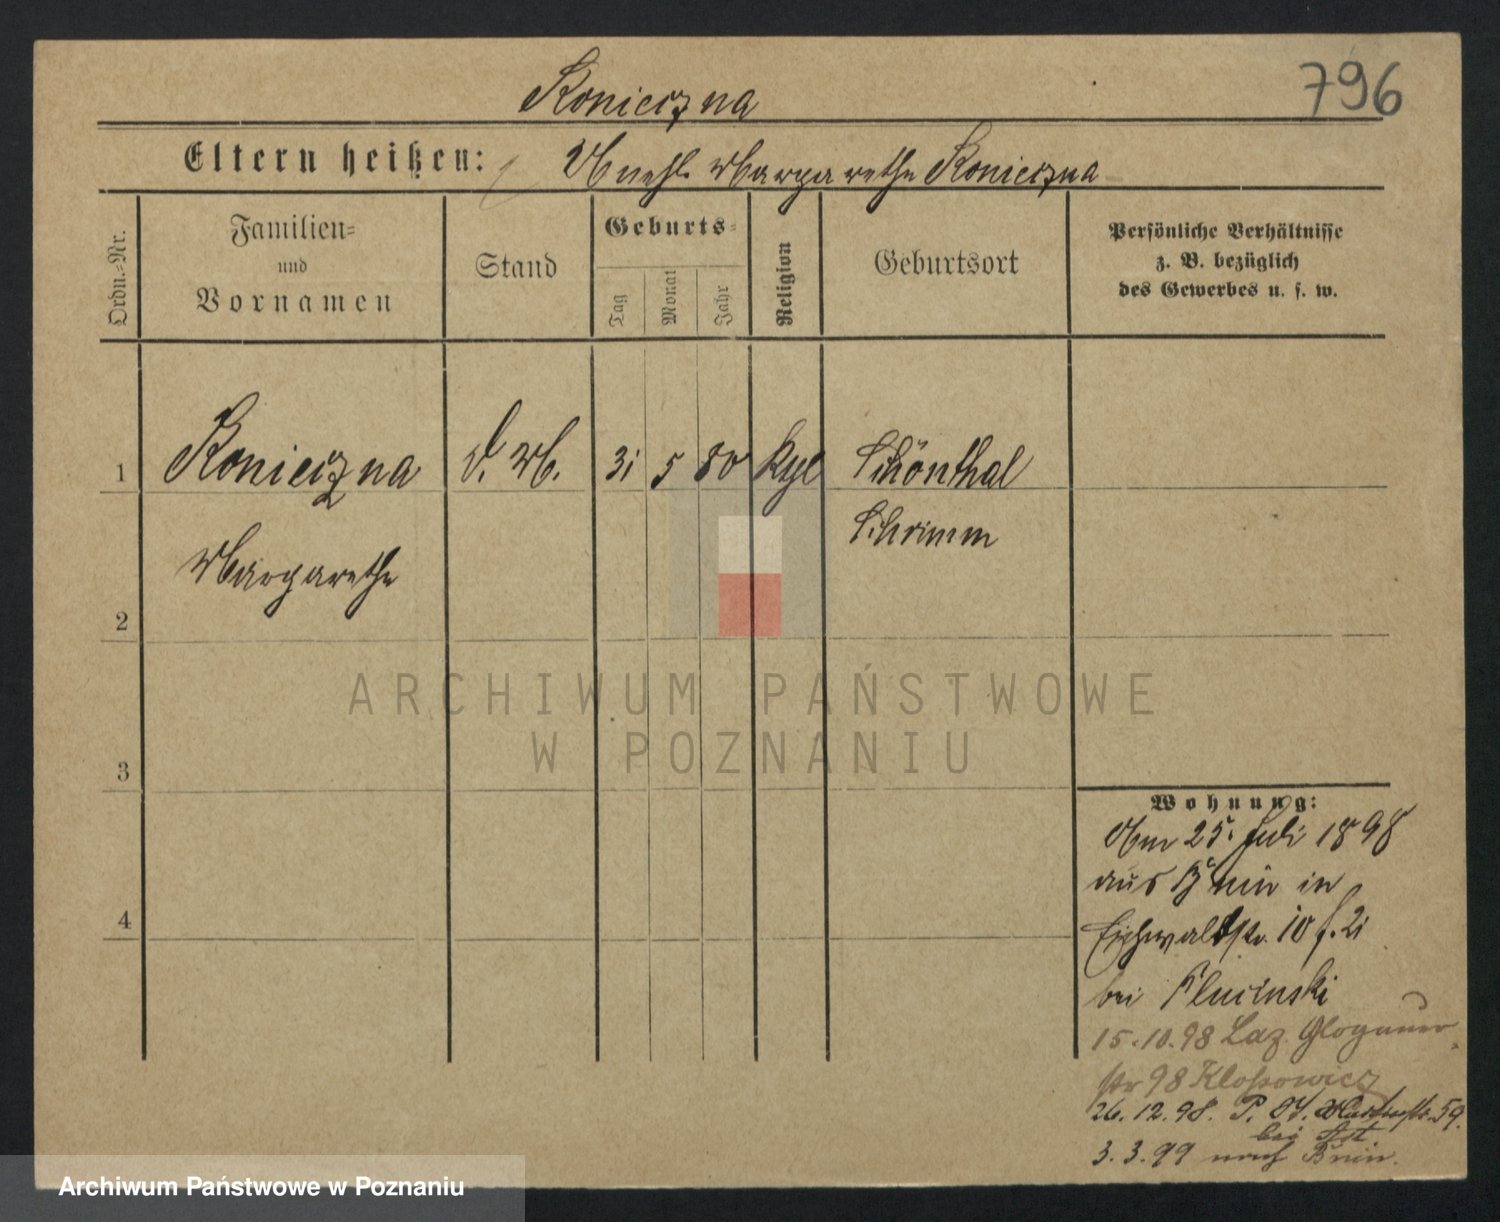 Konieczna
796
Eltern heißen: Unehl. Margarethe Konieczna
Ordn.=Nr.
Familien=
und
Vornamen
Stand
Geburts=
Tag
Monat
Jahr
Religion
Geburtsort
Persönliche Verhältnisse
z. B. bezüglich
des Gewerbes u. s. w.
1 Konieczna d. M. 31 5 80 Kgl Schönthal
Schrimm
Margarethe
2
3
4
Wohnung:
Am 25. Juli 1898
aus Bnin in
Eichwaldstr. 10 f. 2i
bei Plucinski
15.10.98 Laz. Glogauer
str 98 Klossowicz
26.12.98. P. 59.
bei
3.3.99 nach Bnin.
ARCHIWUM PAŃSTWOWE
W POZNANIU
Archiwum Państwowe w Poznaniu